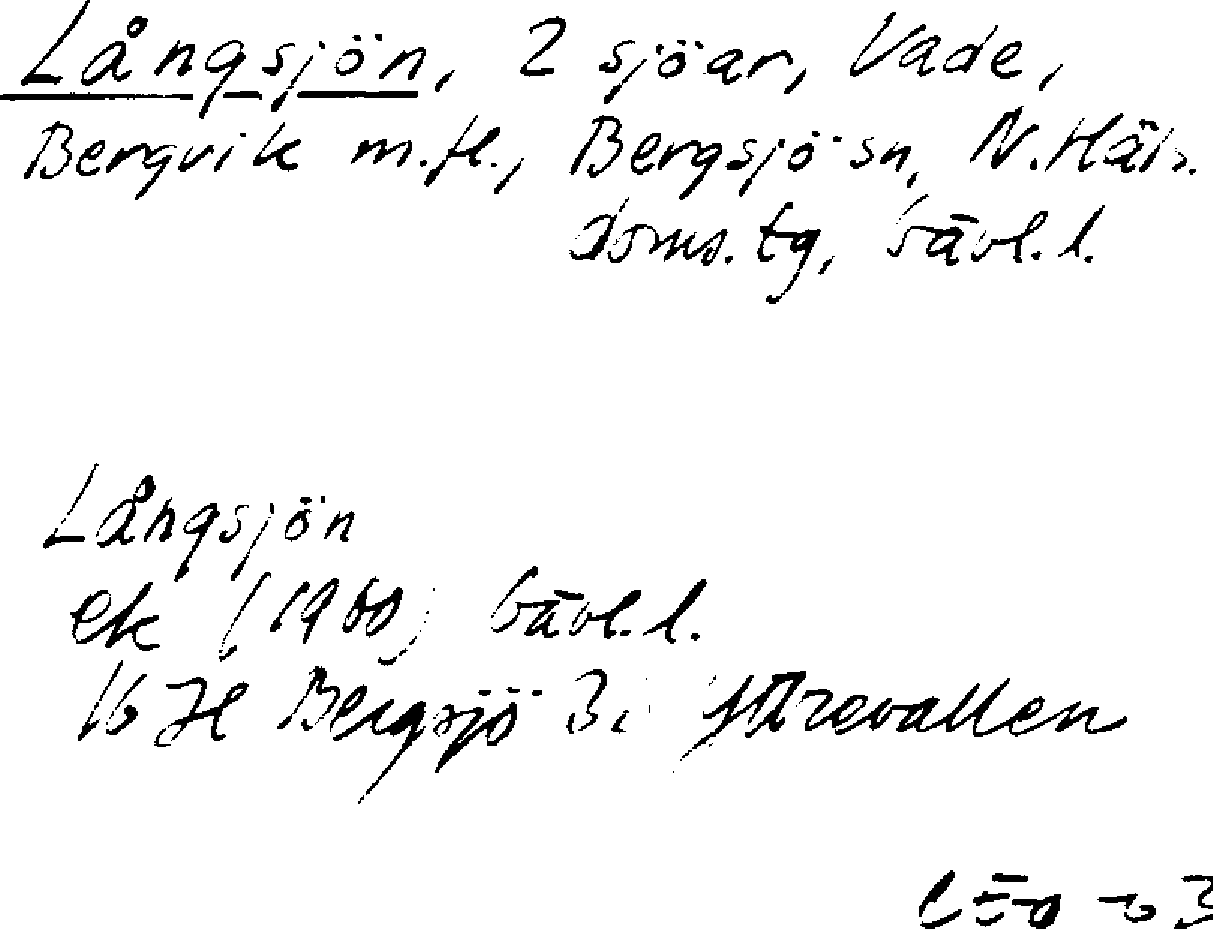 Långsjön, 2 sjöar, Vade,
Bergvik m.fl., Bergsjö sn, N. Häls.
doms. tg, Gävl. l.
Långsjön
ek (1960) Gävl. l.
16 H Bergsjö 3i